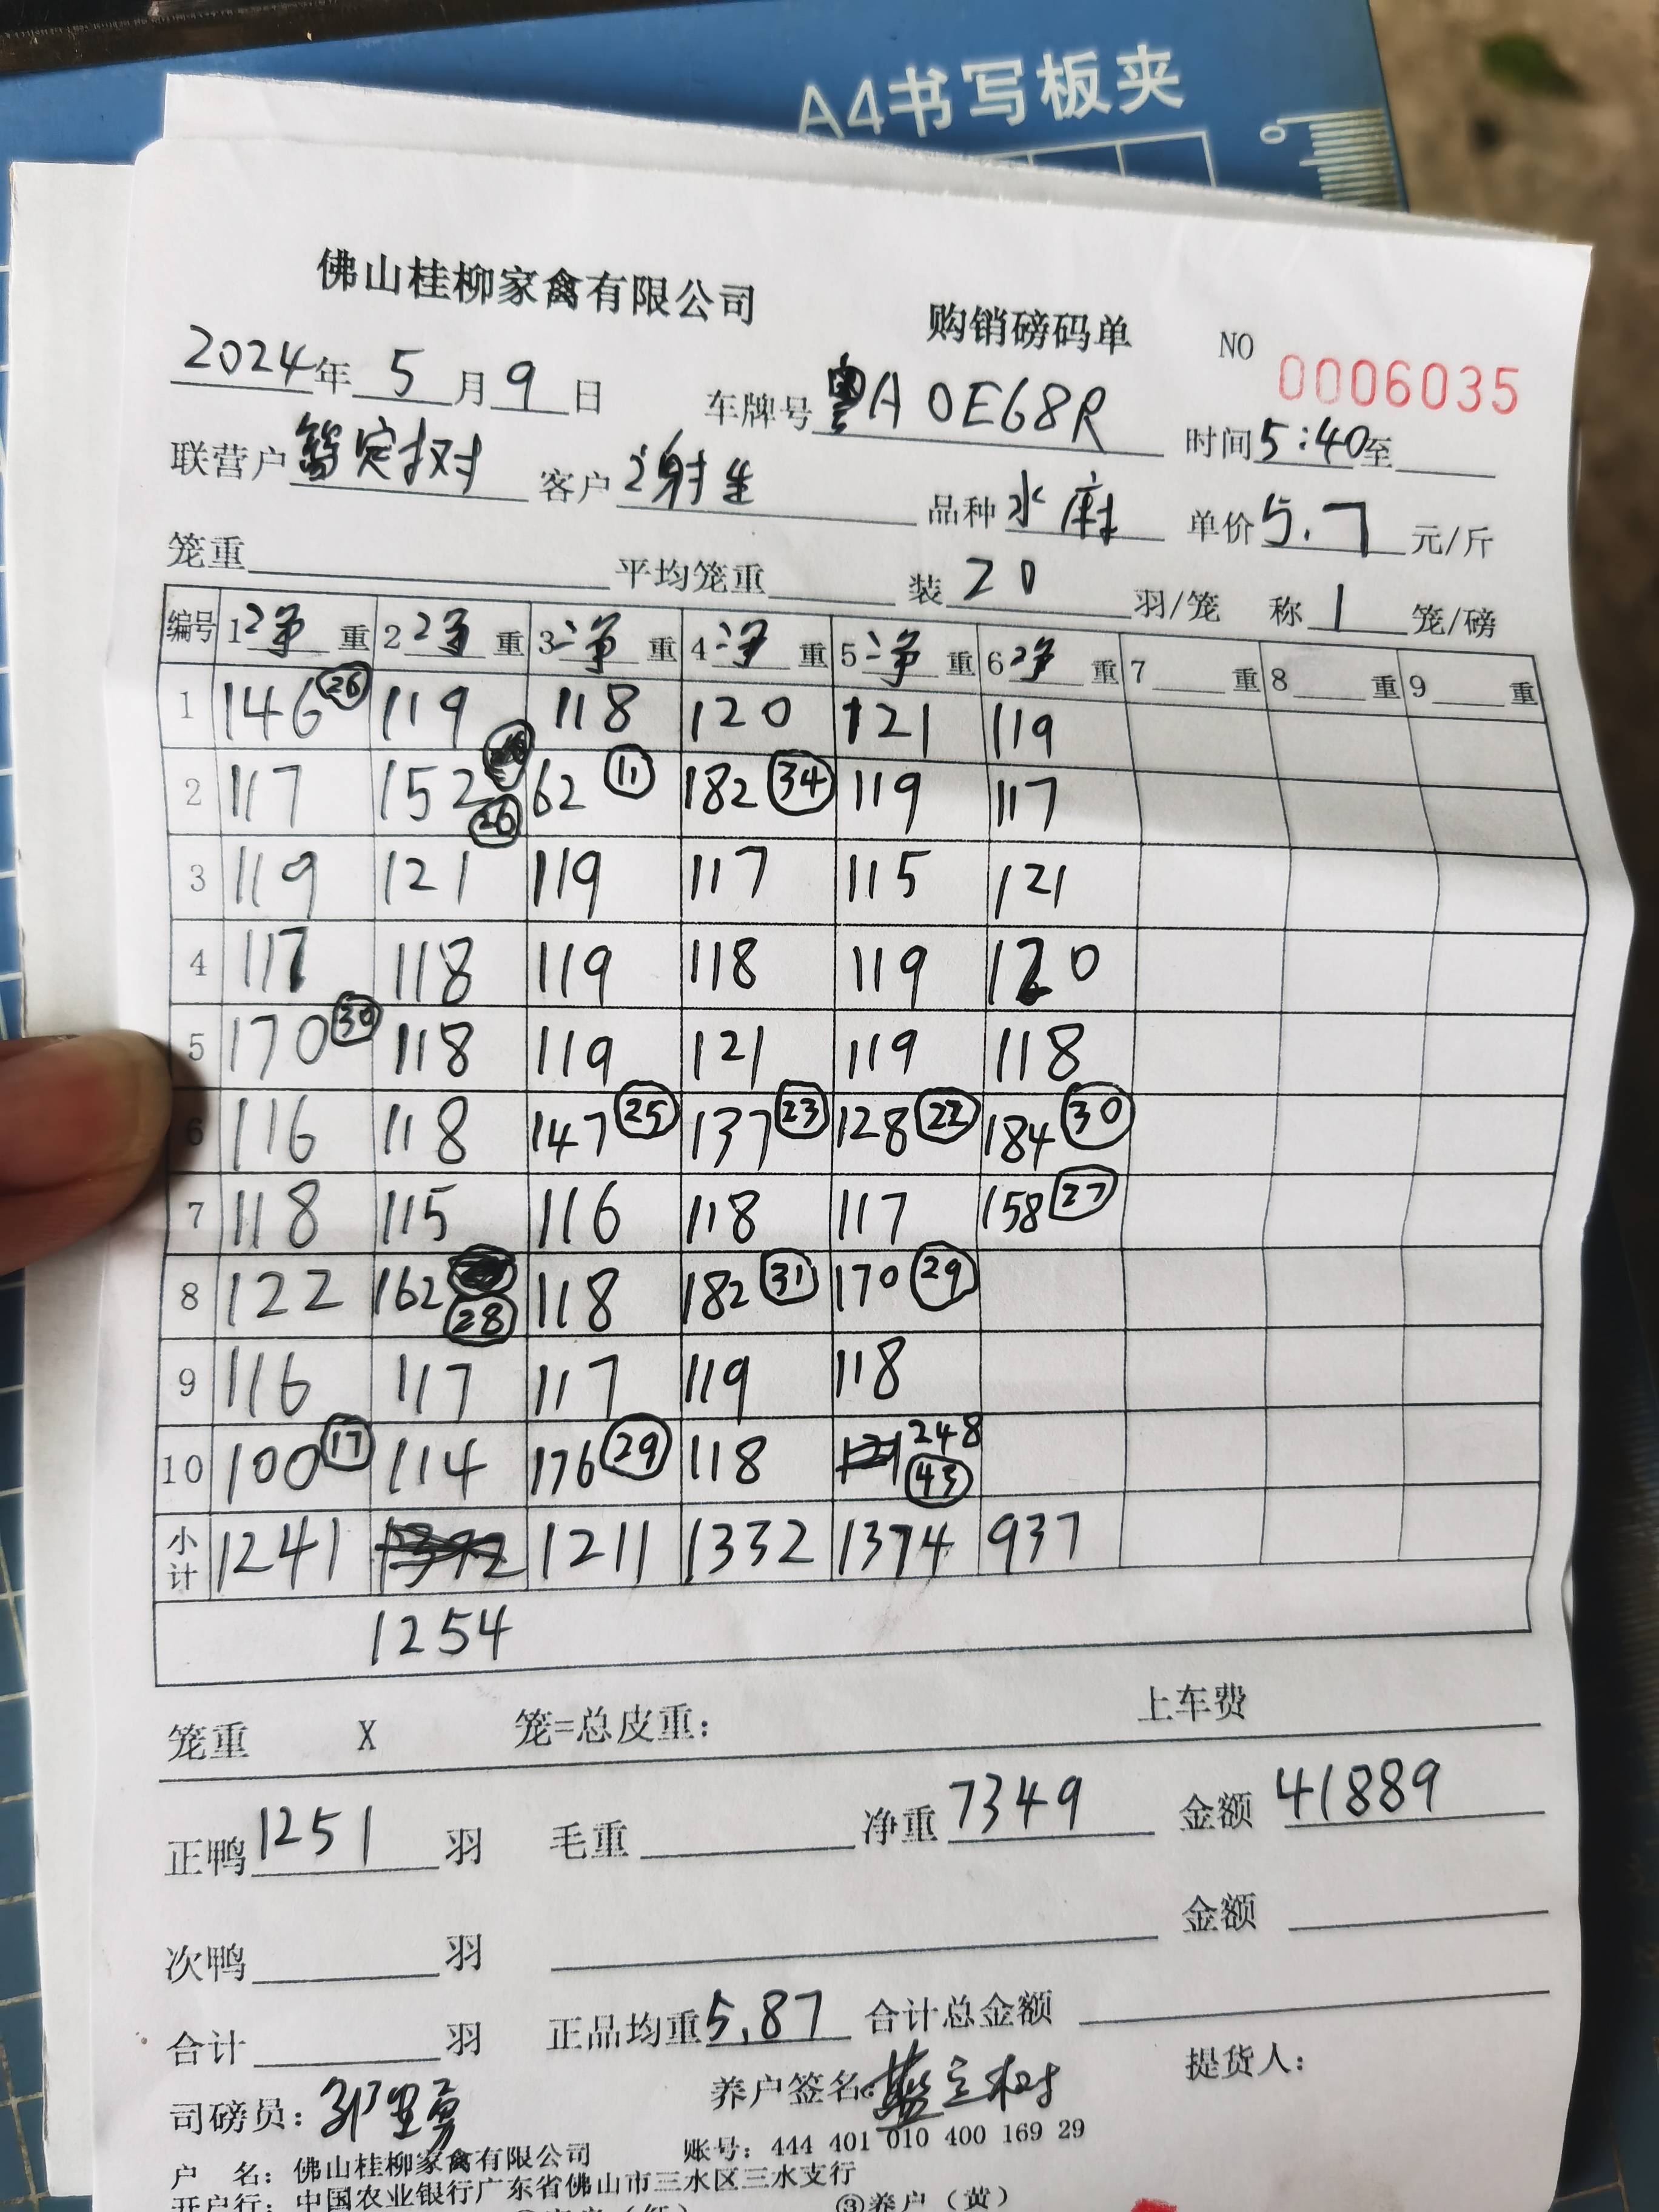 A4书写板夹
0
佛山桂柳家禽有限公司 购销磅码单 NO 0006035
2024年5月9日 车牌号粤A0E68R 时间5:40至
联营户 定树 客户谢生 品种水麻 单价5.7元/斤
笼重 平均笼重 装20羽/笼 称1笼/磅
编号 1净重 2净重 3净重 4净重 5净重 6净重 7重 8重 9重
1 146 26 119 118 120 121 119
2 117 152 26 62 11 182 34 119 117
3 119 121 119 117 115 121
4 117 118 119 118 119 120
5 170 30 118 119 121 119 118
6 116 118 147 25 137 23 128 22 184 30
7 118 115 116 118 117 158 27
8 122 162 28 118 182 31 170 29
9 116 117 117 119 118
10 100 17 114 176 29 118 121 248 43
小计 1241 1372 1211 1332 1374 937
1254
笼重 X 笼=总皮重： 上车费
正鸭1251羽 毛重 净重7349 金额41889
次鸭 羽 金额
合计 羽 正品均重5.87 合计总金额
司磅员： 养户签名： 提货人：
户 名：佛山桂柳家禽有限公司 账号：444 401 010 400 169 29
开户行：中国农业银行广东省佛山市三水区三水支行
③养户（黄）